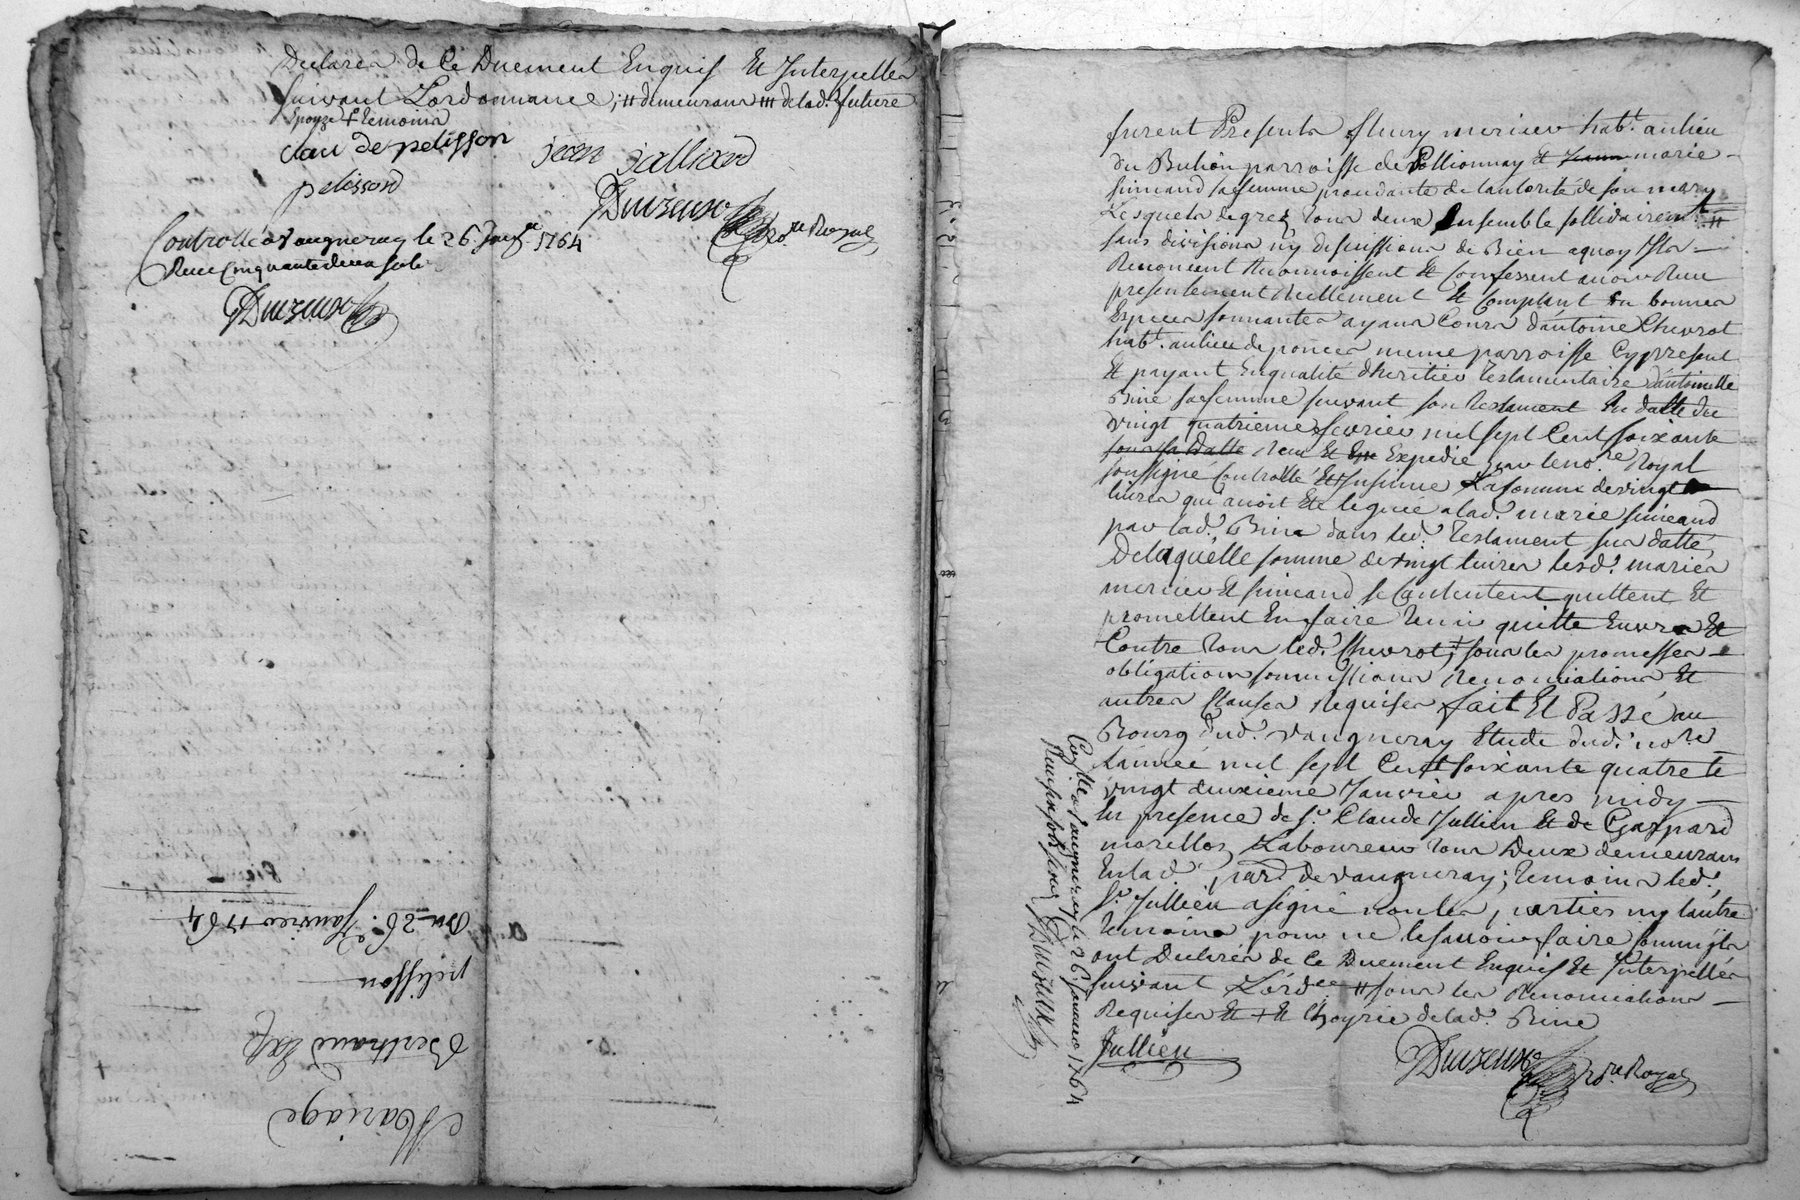 Declarer de Ce Duement Enquis Et Interpellés
suivant Lordonnance, # demeurans ### delad. future
Epouze + temoins
clau de pelisson
jean jullieard
pelisson
Duizeux no.re Royal
Controllé a Vaugneray le 26 Janv.er 1764
Reçu Cinquante deux sols
Duizeux
Du 26.e Janvier 1764
pelisson
Bertrand
Mariage
furent Presents fleury merieu hab.t aulieu
du Buhion parroisse de Pollionnay et Jeann marie
simeand sa femme procedante de lautorité de son mary
Lesquels de grez tous deux Ensemble sollidairem.t #
sans division n'y discussion de Bien aquoy Ils
Renoncent Reconnoissent Et Confessent avoir Reçu
presentement Reellement Et Comptant En bonnes
Especes sonnantes ayans Cours d'antoine Chevrot
hab.t aulieu de poncer meme parroisse Cy present
Et payant Enqualité dheritier Testamentaire d'antoinette
Bine sa femme suivant son Testament En datte du
vingt quatrieme fevrier mil sept Cent soixante
sous sa datte Recu Et Exp Expedié par le no.re Royal
soussigné Controllé Et Insinué La somme de vingt
livres qui avoit Eté leguée alad. marie simeand
par lad. Bine dans led. Testament sus datté,
De laquelle somme de vingt livres lesd. mariés
merieu Et simeand se Contentent quittent Et
promettent En faire tenir quitte Envers Et
Contre tous led. Chevrot, + sous les promesses
obligations soummissions renonciations Et
autres Clauses requises fait Et Passé au
Bourg dud. Vaugneray Etude dud. no.re
Lannée mil sept Cent soixante quatre le
vingt deuxieme Janvier apres midy
En presence de S.r Claude Jullien Et de Gaspard
morellos Laboureur tous Deux demeurans
Enlad. parr. de vaugneray; temoins led.
S.r Jullien a signé non les parties ny lautre
temoins pour ne le savoir faire
ont Declarés de Ce Duement Enquis Et Interpellés
suivant Lord.ce # sous les Renonciations
Requises Et + Et hoyrie delad. Bine
Jullien
Duizeux no.re Royal
Con.llé a Vaugneray le 26 Janvier 1764
Reçu
Duizeux